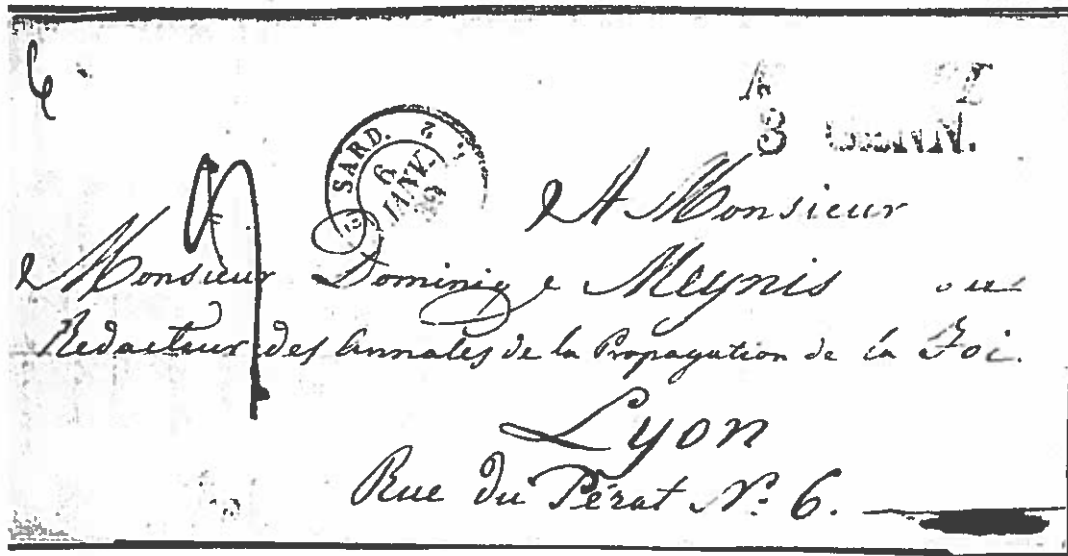 SARD. 2
6
JANV.
8 JANN.
A Monsieur
Monsieur Dominiqe Meynis ou
Redacteur des Annales de la Propagation de la Foi.
Lyon
Rue du Pérat N.º 6.